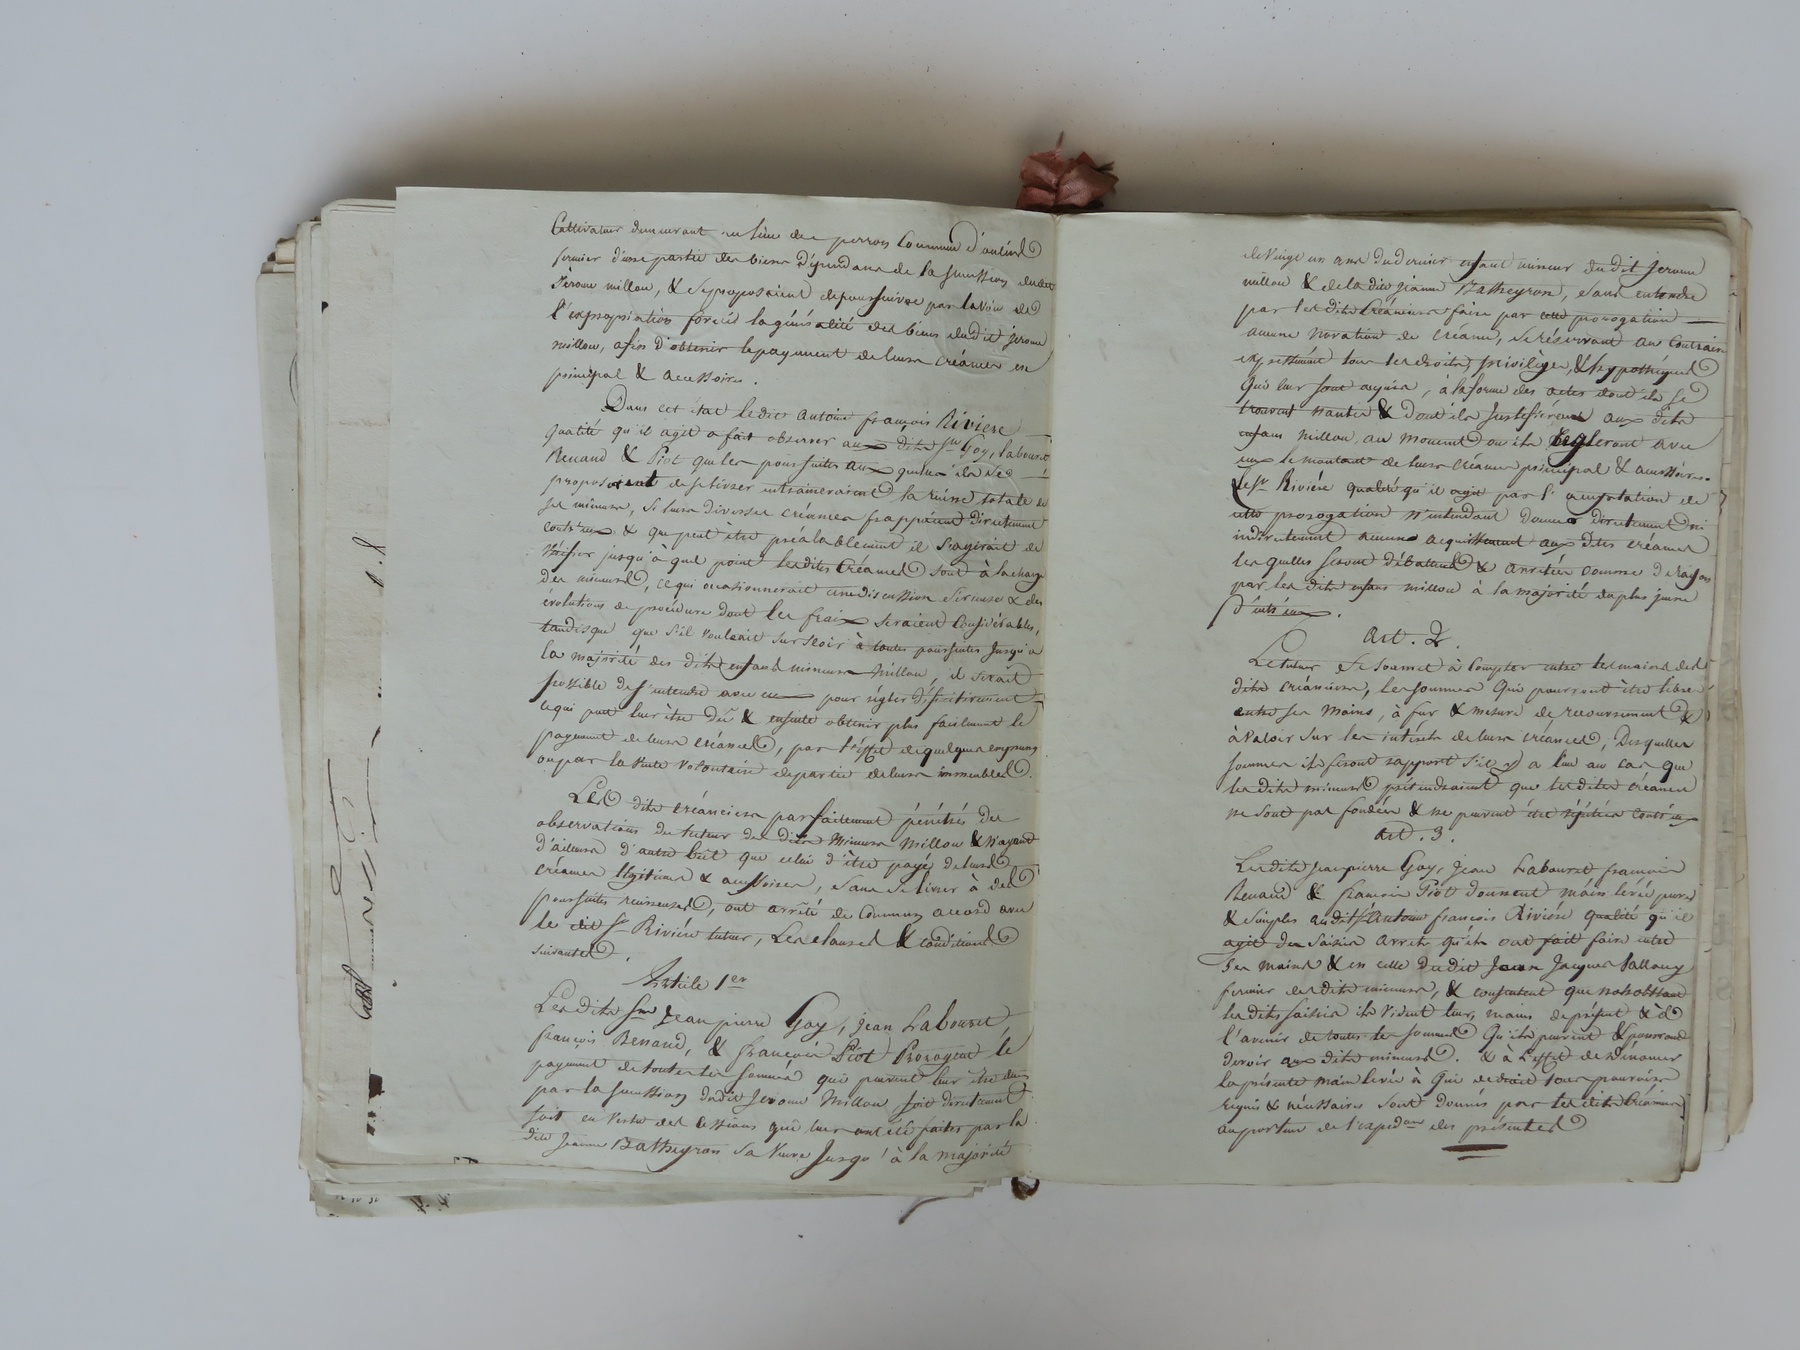 Cultivateur demeurant au lieu des perrons Commune d'oulins
fermier d'une partie des biens dépendans de la succession dudit
Jérome millou, & se proposoient de poursuivre par la voie de
l'expropriation forcée la généralité des biens dudit jerome
millou, afin d'obtenir le payement de leurs créances en
principal & accessoires.
Dans cet état ledit Antoine françois Riviere
qualité qu'il agit a fait observer aux dits Srs Goy, labouret
Renaud & Piot que les poursuites aux quelles ils se
proposoient de se livrer entraineraient la ruine totale de
ses mineurs, si leurs diverses créances frappaient directement
contr'eux & que peut être préalablement il s'agirait de
vérifier jusqu'à quel point lesdites Créances sont à la charge
des mineurs, ce qui occasionnerait une discussion sérieuse & des
évolutions de procédure dont les frais seraient Considérables,
tandisque que s'il voulaient surseoir à toutes poursuites jusqu'à
la majorité des dits enfans mineurs Millou, il serait
possible de s'entendre avec eux pour régler définitivement
ce qui peut leur être dû & ensuite obtenir plus facilement le
payement de leurs créances, par l'effet de quelques emprunts
ou par la vente volontaire de partie de leurs immeubles.
Les dits créanciers parfaitement pénétrés des
observations du tuteur des dits Mineurs Millou & n'ayant
d'ailleurs d'autre but que celui d'être payé de leurs
créances légitimes & accessoires, sans se livrer à des
poursuites ruineuses, ont arrêté de Commun accord avec
le dit Sr Riviére tuteur, Les clauses & conditions
suivantes.
Article 1er
Les dits Srs Jean pierre Goy, jean Labouret
françois Renaud, & françois Piot Prorogent le
payement de toutes les sommes qui peuvent leur être dues
par la succession dudit Jerome Millou soit directement
soit en vertu des cessions qui leur ont été faites par la
dite Jeanne Batheyron sa Veuve Jusqu'à la majorité
de vingt un ans du dernier enfant mineur dudit Jerome
millou & de la dite jeanne Batheyron, sans entendre
par lesdits Créanciers faire par cette prorogation
aucune novation de créance, se réservant au Contraire
expressément tous les droits, privilèges, & hypothèques
qui leur sont acquis, à la forme des actes dont ils se
trouvent nantis & dont ils justifieront aux dits
enfans Millou au moment ou ils Régleront avec
eux le montant de leurs créances principal & accessoires.
Le Sr Riviére qualité qu'il agit par l'acceptation de
cette prorogation n'entendant donner directement ni
indirectement aucun acquiessement aux dites créances
les quelles seront débattues & arrêtées comme de raison
par les dits enfans millou à la majorité du plus jeune
d'entr'eux.
Art. 2.
Le tuteur se soumet à Compter entre les mains des
dits créanciers, les sommes qui pourront être libres
entre ses mains, à fur & mesure de recouvrement &
à valoir sur les intérêts de leurs créances, Desquelles
sommes ils feront rapport s'il y a lieu au cas que
les dits mineurs prétendraient que lesdites créances
ne sont pas fondées & ne peuvent être répétées contr'eux
Art. 3.
Les dits Jean pierre Goy, Jean Labouret francois
Renaud & françois Piot donnent main levée pures
& simples audit Sr Antoine françois Riviére qualité qu'il
agit des saisies arrets qu'ils ont fait faire entre
ses mains & en celle dudit Jean Jacques
fermier desdits mineurs, & consentent que nonobstant
les dits saisies ils vident leurs mains de présent & à
l'avenir de toutes les sommes qu'ils peuvent & pourront
devoir aux dits mineurs. & à l'effet de dénoncer
la présente main levée à qui de droit tous pouvoirs
requis & nécessaires sont donnés par lesdits Créanciers
au porteur de l'expedon des présentes